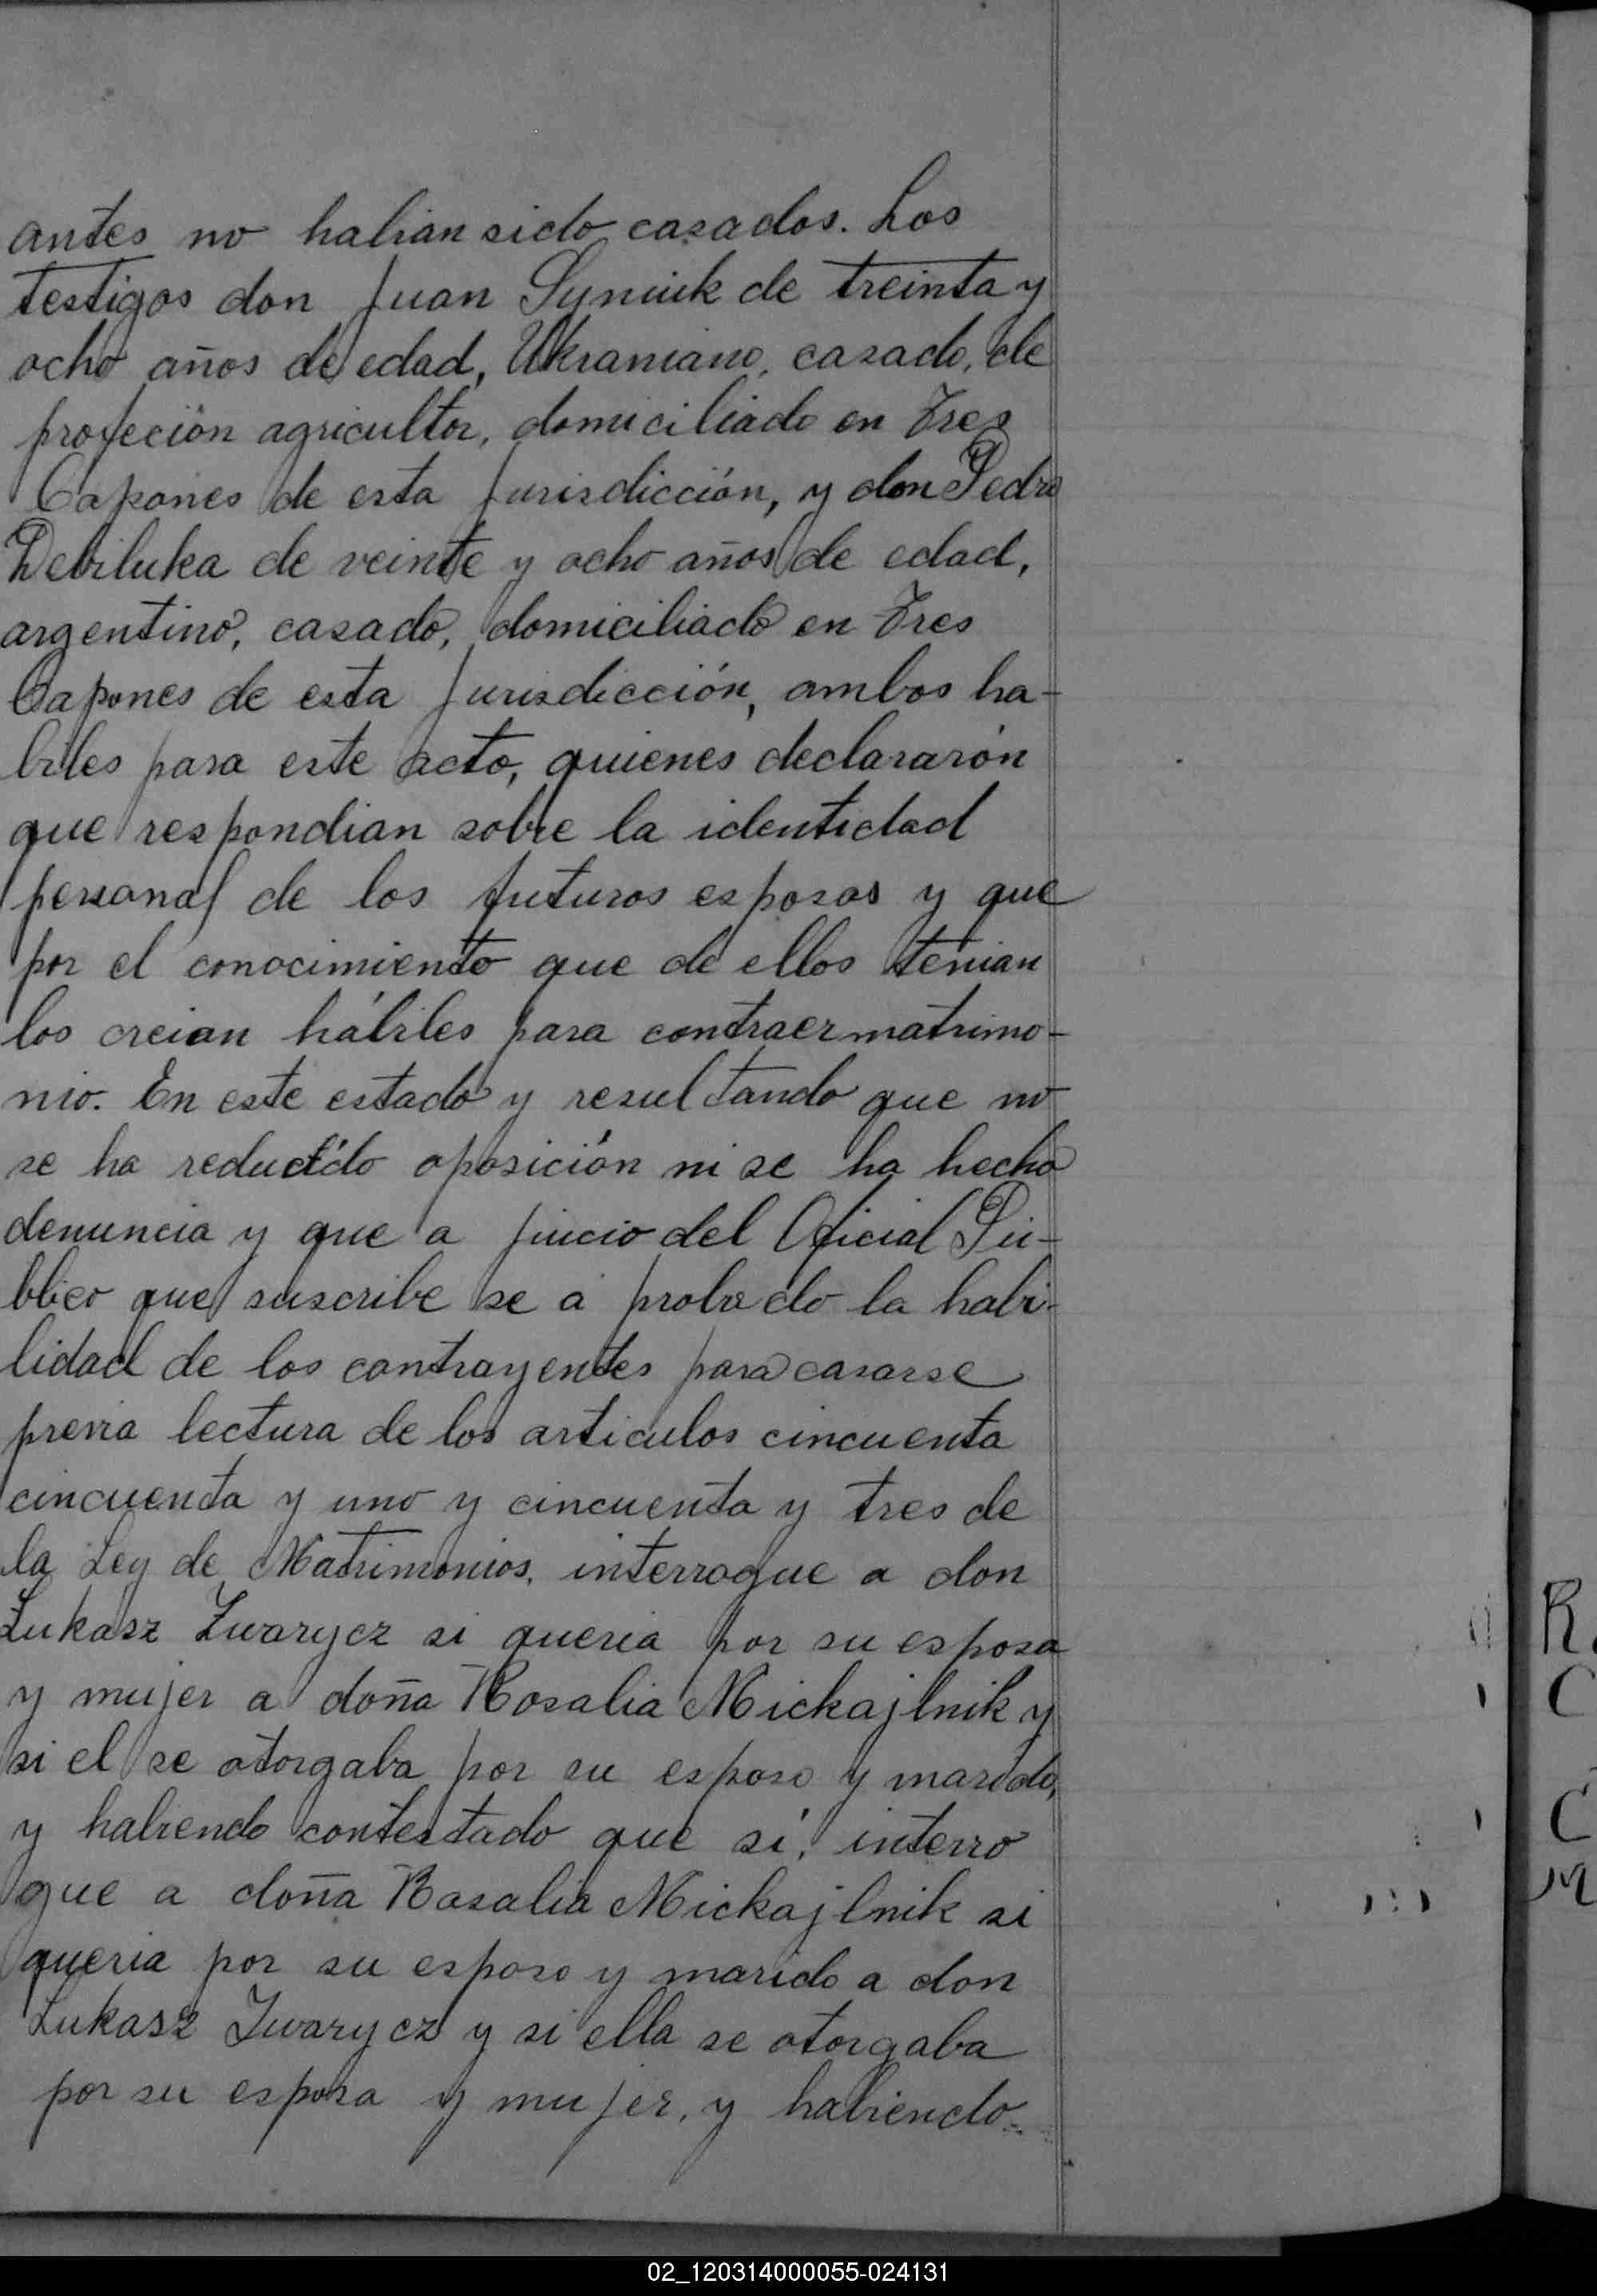 antes no habian sido casados. Los
testigos don Juan Syniuk de treinta y
ocho años de edad, Ukraniano, casado, de
profeción agricultor, domiciliado en Tres
Capones de esta Jurisdicción, y don Pedro
Debiluka de veinte y ocho años de edad,
argentino, casado, domiciliado en Tres
Capones de esta Jurisdicción, ambos ha-
biles para este acto, quienes declararón
que respondian sobre la identidad
personal de los futuros esposos y que
por el conocimiento que de ellos tenian
los creian hábiles para contraer matrimo-
nio. En este estado y resultando que no
se ha reducido oposición ni se ha hecho
denuncia y que a juicio del Oficial Pú-
blico que suscribe se a probado la habi-
lidad de los contrayentes para casarse
previa lectura de los articulos cincuenta
cincuenta y uno y cincuenta y tres de
la Ley de Matrimonios, interrogue a don
Lukasz Zwarycz si queria por su esposa
y mujer a doña Rosalia Mickajlnik y
si el se otorgaba por su esposo y marido,
y habiendo contestado que sí, interro
gue a doña Rosalia Mickajlnik si
queria por su esposo y marido a don
Lukasz Zwarycz y si ella se otorgaba
por su esposa y mujer, y habiendo
R
C
C
M
02_120314000055-024131